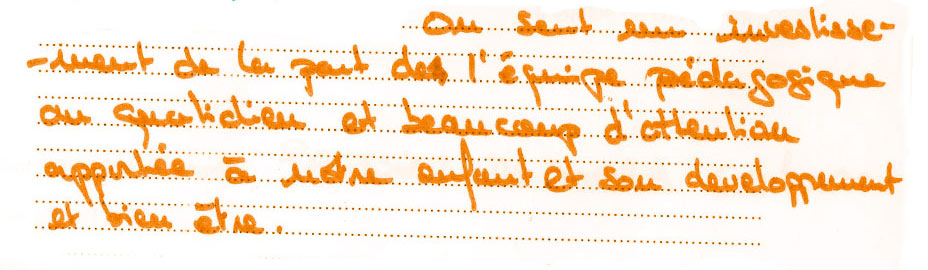 On sent un investisse-
-ment de la part de l'équipe pédagogique
au quotidien et beaucoup d'attention
apportée à notre enfant et son developpement
et bien être.